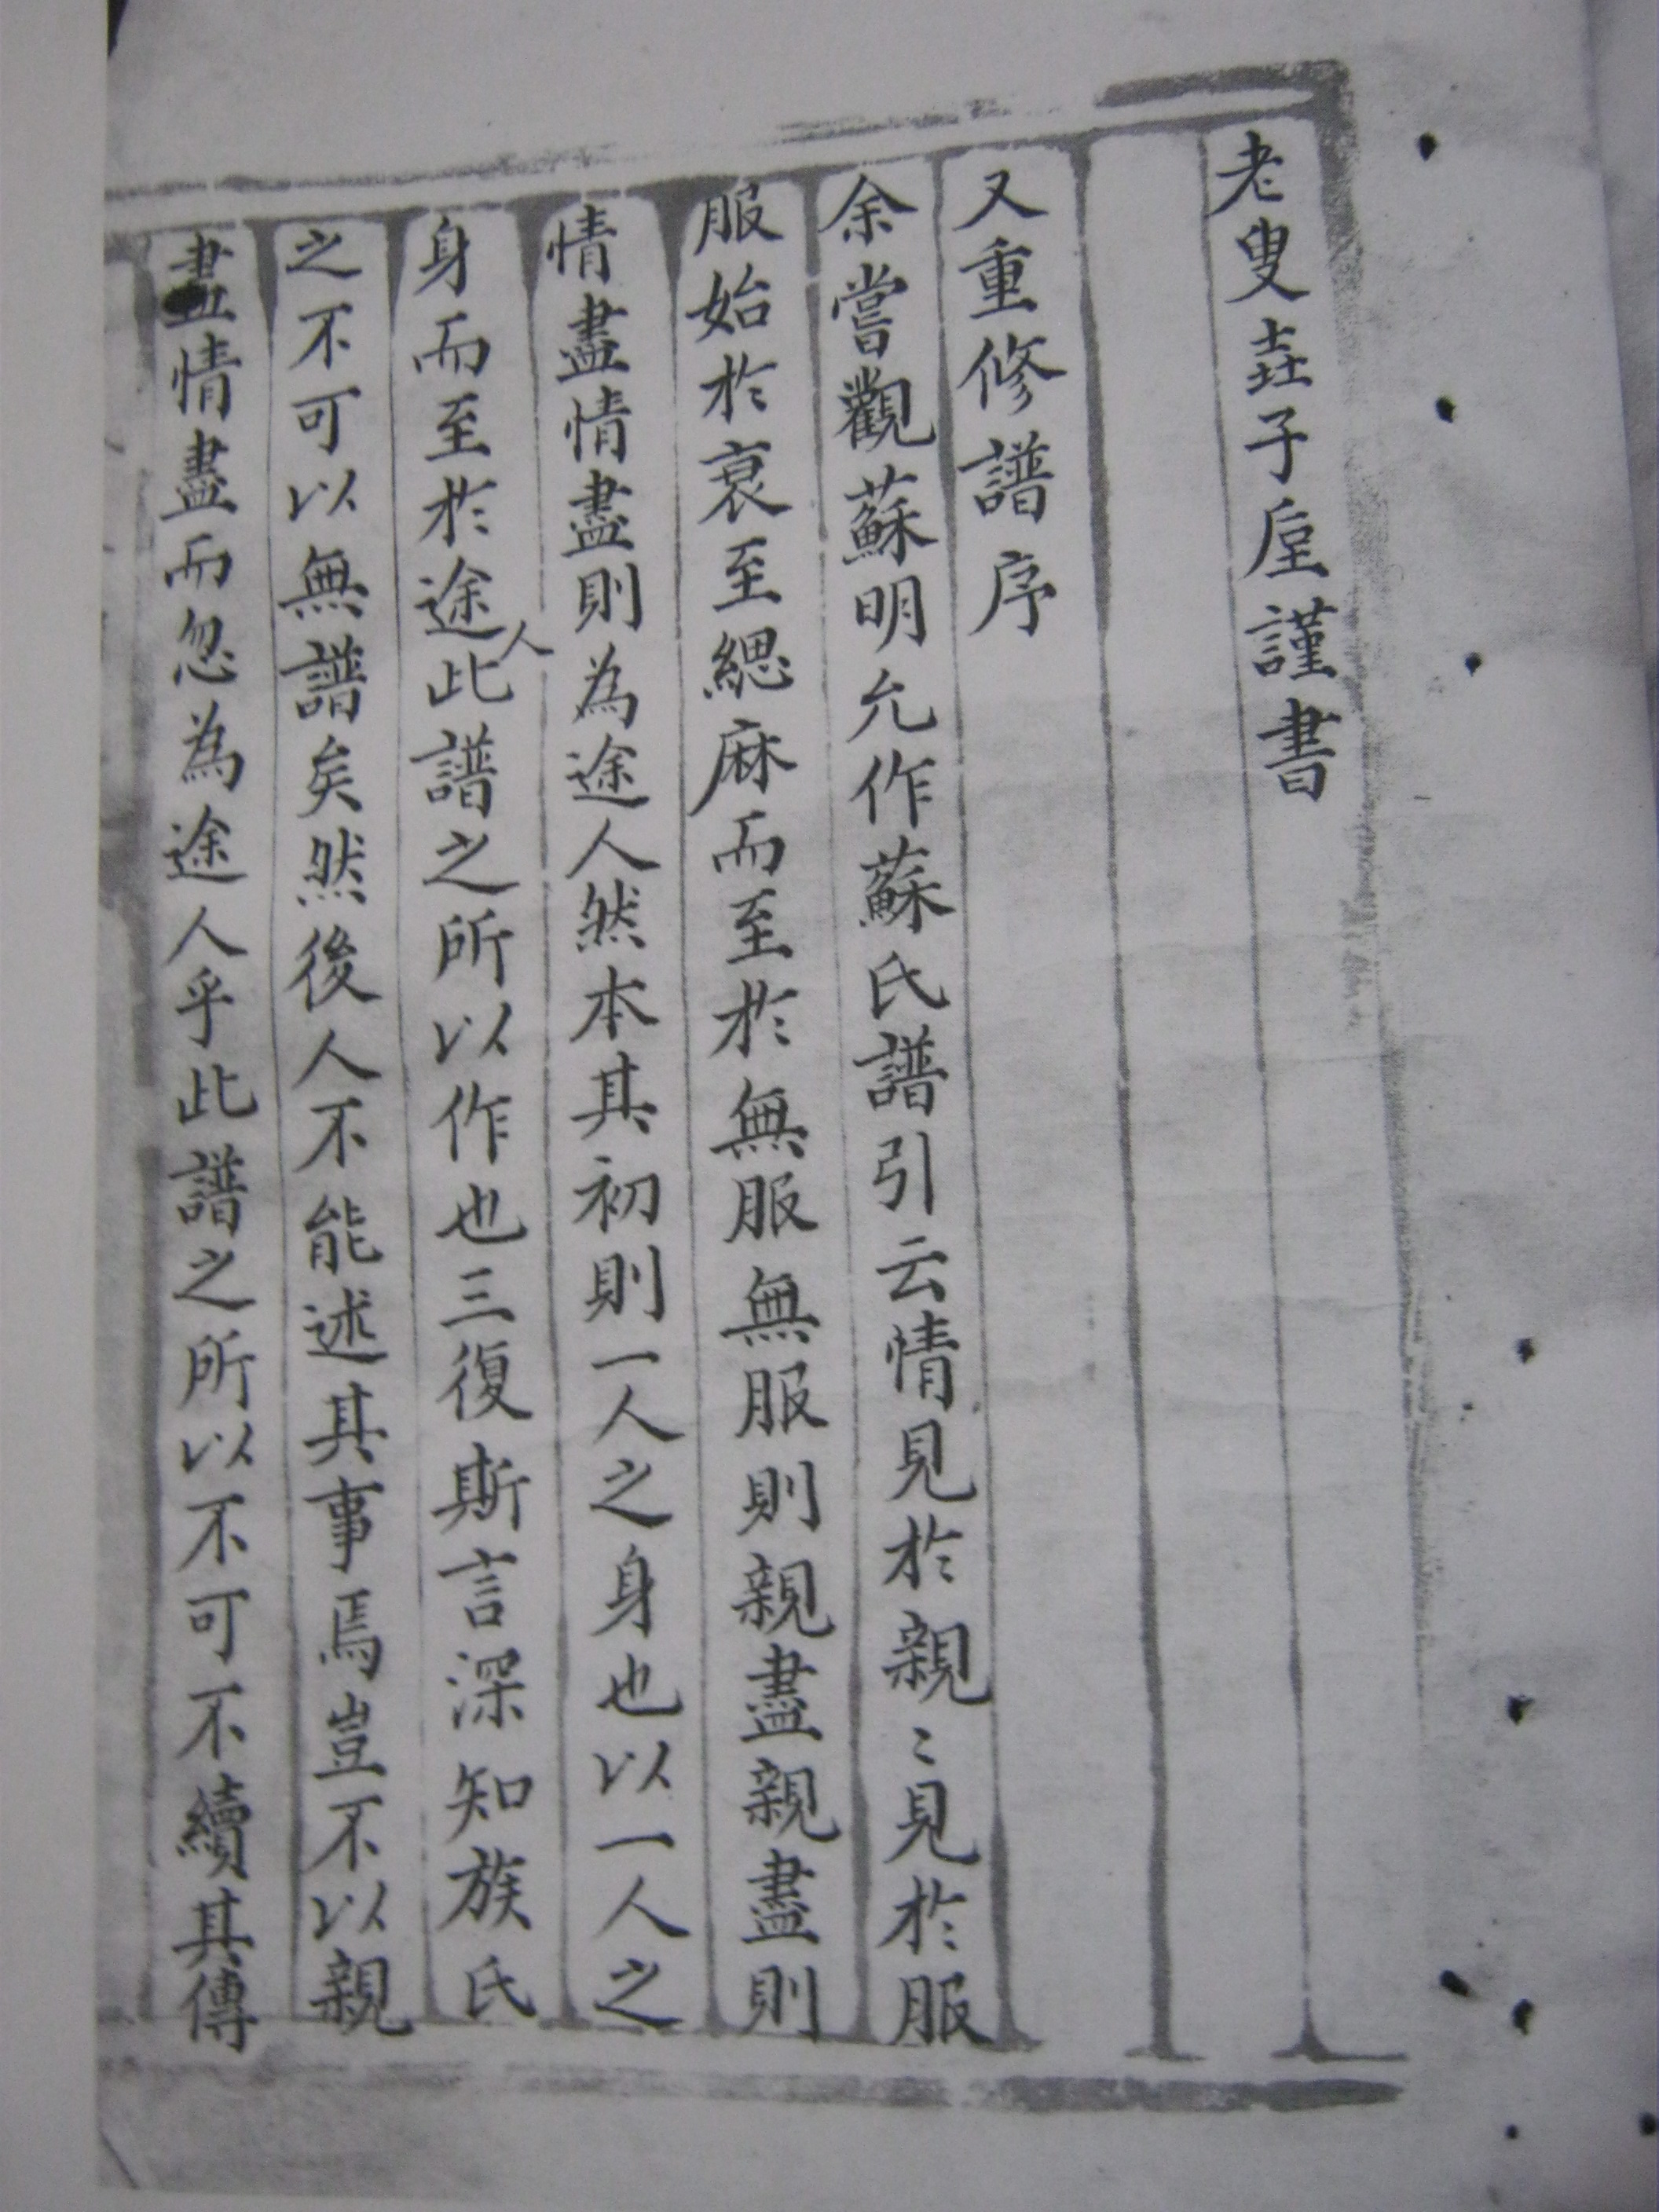 老叟壵子垕謹書
又重修譜序
余嘗觀蘇明允作蘇氏譜引云情見於親〻見於服
服始於衰至緦麻而至於無服無服則親盡親盡則
情盡情盡則為途人然本其初則一人之身也以一人之
身而至於途人此譜之所以作也三復斯言深知族氏
之不可以無譜矣然後人不能述其事焉豈不以親
盡情盡而忽為途人乎此譜之所以不可不續其傳